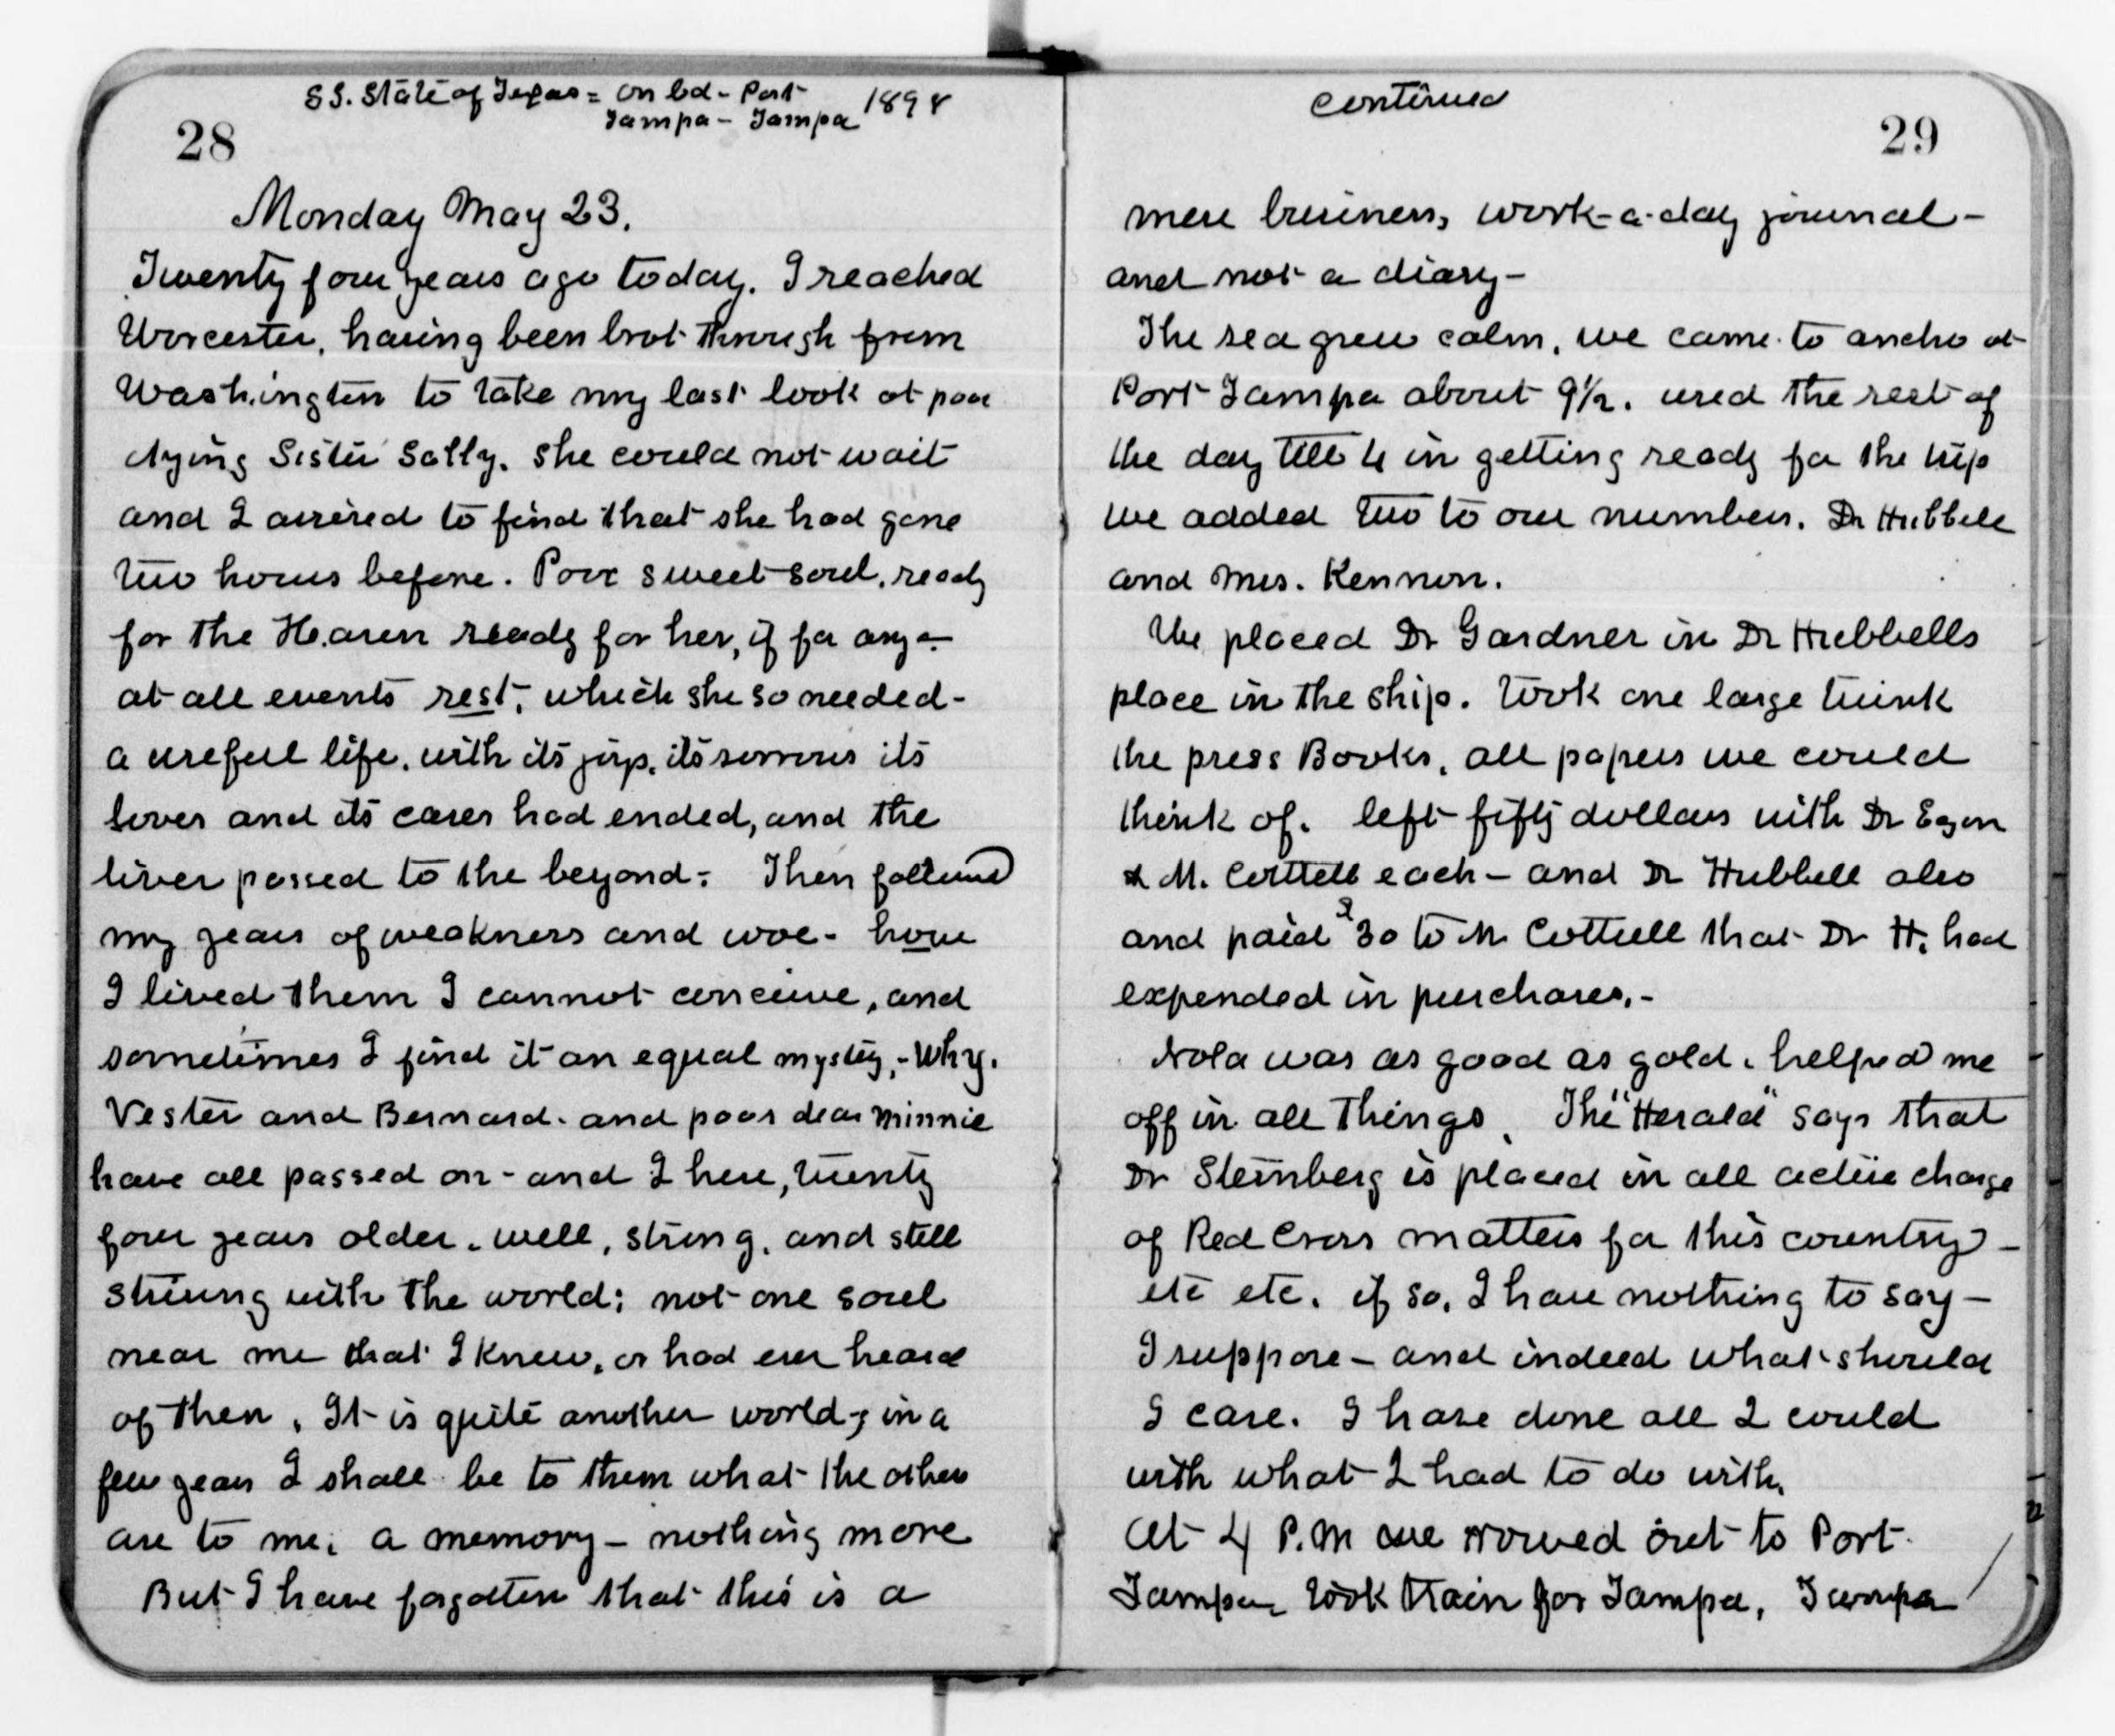 SS. State of Texas = on bd - Port
Tampa - Tampa 1898
28
Monday May 23.
Twenty four years ago today. I reached
Worcester, having been brot through from
Washington to take my last look at poor
dying Sister Sally. She could not wait
and I arrived to find that she had gone
two hours before. Poor sweet soul, ready
for the Heaven ready for her, if for any -
at all events rest, which she so needed -
a usefull life, with its joys, its sorrows its
loves and its cares had ended, and the
liver passed to the beyond - Then followed
my years of weakness and woe - how
I lived them I cannot conceive, and
sometimes I find it an equal mystery, - Why.
Vester and Bernard. and poor dear Minnie
have all passed on - and I here, twenty
four years older. well, strong, and still
striving with the world; not one soul
near me that I knew, or had ever heard
of then. It is quite another world; in a
few years I shall be to them what the others
are to me; a memory - nothing more
But I have forgotten that this is a
continued
29
mere business, work-a-day journal -
and not a diary -
The sea grew calm, we came to ancho at
Port Tampa about 9½. used the rest of
the day till 4 in getting ready for the trip
we added two to our numbers. Dr Hubbell
and Mrs. Kennon.
We placed Dr Gardner in Dr Hubbells
place in the ship. Took one large trunk
the press Books, all papers we could
think of. left fifty dollars with Dr Egan
& M. Cottrell each - and Dr Hubbell also
and paid $30 to Mr Cottrell that Dr H. had
expended in purchases. -
Nola was as good as gold. helped me
off in all things. The "Herald" says that
Dr Sternberg is placed in all active charge
of Red Cross matters for this country -
etc etc. if so, I have nothing to say -
I suppose - and indeed what should
I care. I have done all I could
with what I had to do with.
At 4 P.M we rowed out to Port
Tampa took train for Tampa, Tampa